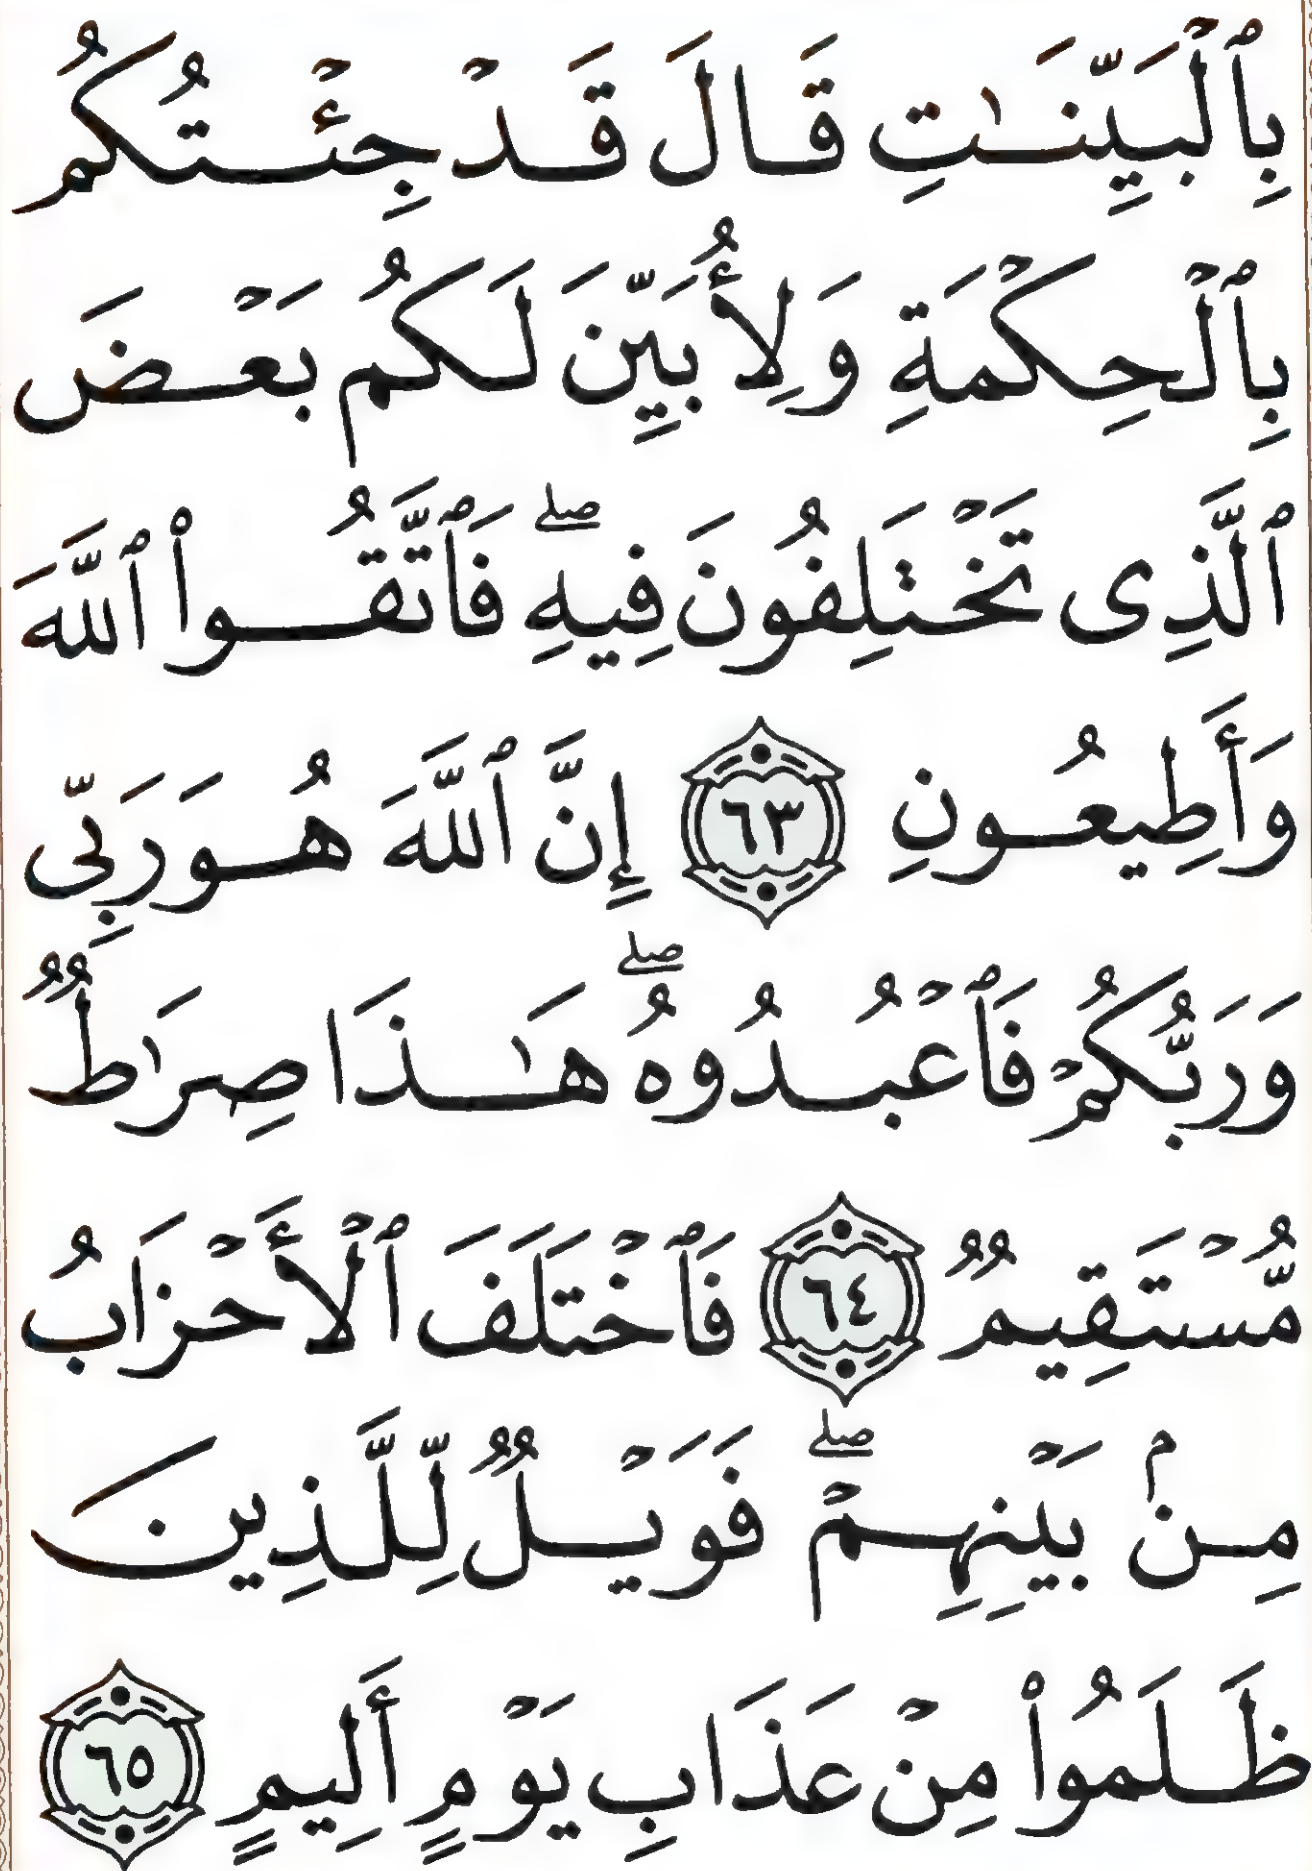 بِٱلْبَيِّنَـٰتِ قَالَ قَدْ جِئْتُكُم
بِٱلْحِكْمَةِ وَلِأُبَيِّنَ لَكُم بَعْضَ
ٱلَّذِى تَخْتَلِفُونَ فِيهِ ۖ فَٱتَّقُوا۟ ٱللَّهَ
وَأَطِيعُونِ ٦٣ إِنَّ ٱللَّهَ هُوَ رَبِّى
وَرَبُّكُمْ فَٱعْبُدُوهُ ۖ هَـٰذَا صِرَٰطٌ
مُّسْتَقِيمٌ ٦٤ فَٱخْتَلَفَ ٱلْأَحْزَابُ
مِنۢ بَيْنِهِمْ ۖ فَوَيْلٌ لِّلَّذِينَ
ظَلَمُوا۟ مِنْ عَذَابِ يَوْمٍ أَلِيمٍ ٦٥